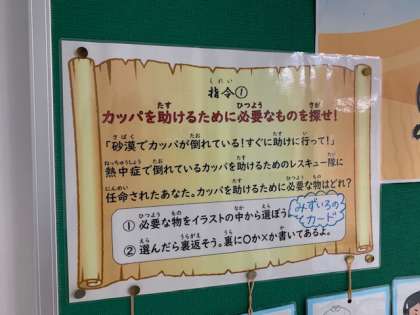 しれい
指令①
たす ひつよう さが
カッパを助けるために必要なものを探せ!
さばく たお たす い
「砂漠でカッパが倒れている!すぐに助けに行って!」
ねっちゅうしょう たお たす たい
熱中症で倒れているカッパを助けるためのレスキュー隊に
にんめい たす ひつよう もの
任命されたあなた。カッパを助けるために必要な物はどれ?
ひつよう もの なか えら
①必要な物をイラストの中から選ぼう。
みずいろの
カード
えら うらがえ うら か
②選んだら裏返そう。裏に○か×か書いてあるよ。